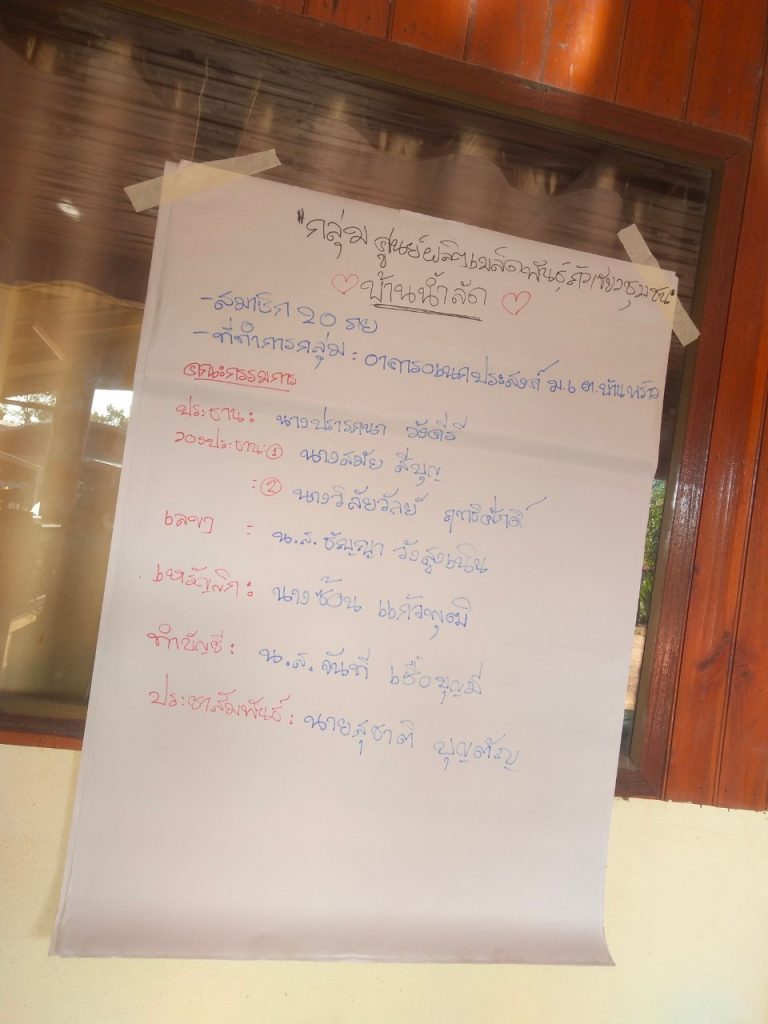 "กลุ่มศูนย์ผลิตเมล็ดพันธุ์ถั่วเขียวชุมชน"
บ้านน้ำลัด
- สมาชิก 20 ราย
- ที่ทำการกลุ่ม : อาคารอเนกประสงค์ ม.6 ต.
คณะกรรมการ
ประธาน : นางปรารถนา วังคีรี
รองประธาน : ① นางสมัย สีบุญ
: ② นางวิลัยวัลย์ ฤทธิศักดิ์
เลขาฯ : น.ส.ธัญญา วังสูงเนิน
เหรัญญิก : นางซ้อน แก้วพุฒ
ทำบัญชี : น.ส.จันที เชื้อบุญมี
ประชาสัมพันธ์ : นายสุชาติ